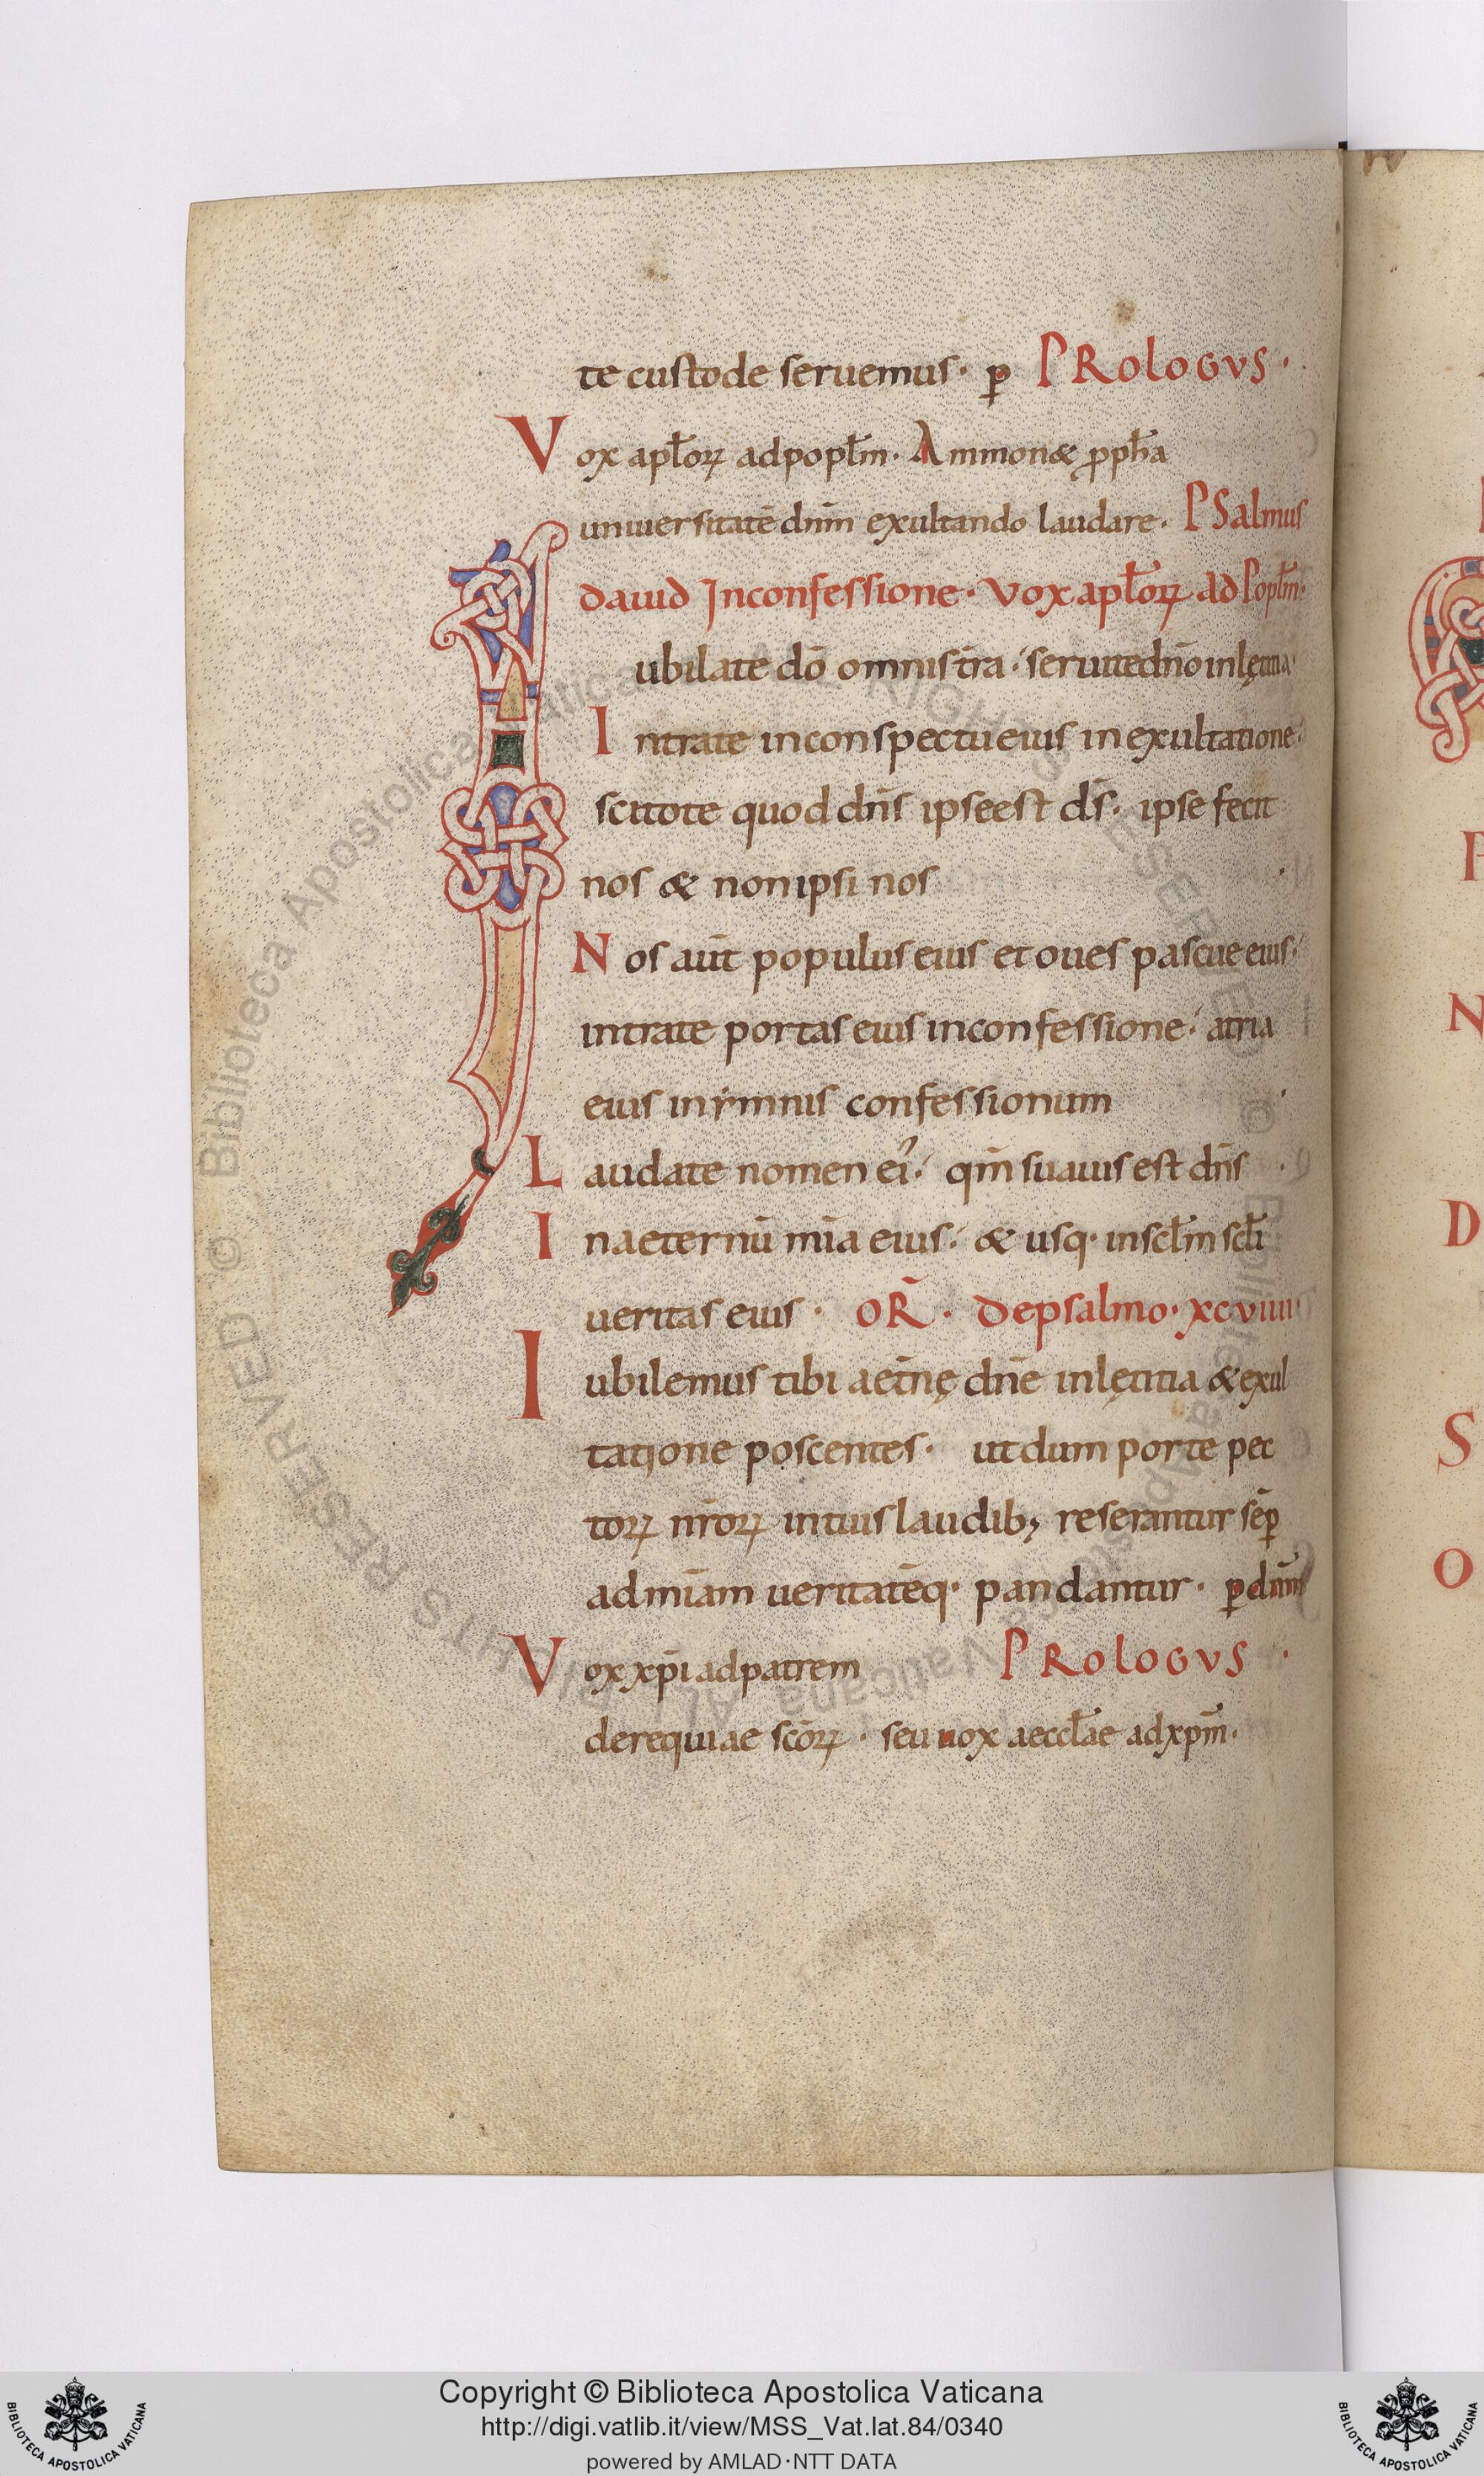 te custode seruemus · ꝑ PROLOGVS ·
Vox apl̄oꝝ ad popl̄m · Ammon& ꝓph̄a
uniuersitatē dn̄m exultando laudare · PSalmus
dauid In confessione · Vox apl̄oꝝ ad Popl̄m ·
Iubilate dō omnis tr̄a · seruite dn̄o in lętitia ·
Intrate in conspectu eius in exultatione ·
scitote quod dn̄s ipse est d̄s · ipse fecit
nos & non ipsi nos
Nos aūt populus eius et oues pascue eius ·
intrate portas eius in confessione · atria
eius in ẏmnis confessionum
Laudate nomen ei᾽ · qm̄ suauis est dn̄s
In aeternū mīa eius · & usq· in scl̄m scl̄i
ueritas eius · OR̄ · De psalmo · xcviiii
Iubilemus tibi aet̄nę dn̄e in lętitia & exul
tatione poscentes · ut dum porte pec
toꝝ nr̄oꝝ intuis laudib; reserantur sēꝑ
ad mīam ueritatēq· pandantur · ꝑ dn̄m
Vox xp̄i ad patrem PROLOGVS ·
de requiae sc̄oꝝ · seu uox aeccl̄ae ad xp̄m ·
P
N
D
S
O
Copyright © Biblioteca Apostolica Vaticana
http://digi.vatlib.it/view/MSS_Vat.lat.84/0340
powered by AMLAD·NTT DATA
BIBLIOTECA APOSTOLICA VATICANA
BIBLIOTECA APOSTOLICA VATICANA